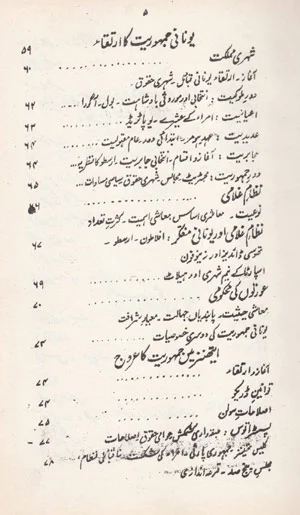 ۵
یونانی جمہوریت کا ارتقاء
شہری مملکت ۵۹
آغاز۔ ارتقاء یونانی قبائل۔ شہری حقوق۔ ۶۰
دور ملوکیت : انتخابی اور موروثی بادشاہت ۔ بول ۔ اگورا ... ۶۲
اعیانیت : امراء کے ... ۶۳
عدیدیت : عہد ... ابتدائی دور۔ عام مقبولیت ... ۶۴
جابریت : آغاز و اختتام۔ انتخابی جابریت۔ ارسطو کا نظریہ ... ۶۴
دور جمہوریت : مجسٹریٹ۔ مجالس۔ شہری حقوق۔ سیاسی مساوات ... ۶۵
نظام غلامی
نوعیت ۔ معاشری اساس۔ معاشی اہمیت ۔ کثرت تعداد
نظام غلامی اور یونانی مفکر : افلاطون ۔ ارسطو ۔ ۶۷
تھوسی ڈائڈیز اور زینوفون
اسپارٹا کے نیم شہری اور ہیلاٹ ۶۹
عورتوں کی محکومی ۷۰
معاشی حیثیت۔ پابندیاں۔ جہالت ۔ معیار شرافت
یونانی جمہوریت کی دوسری خصوصیات ۷۳
ایتھنز میں جمہوریت کا عروج
آغاز و ارتقاء ۷۴
قوانین ڈریکو ۷۴
اصلاحات سولن ۷۵
پسسٹراٹوس : طبقہ داری کشمکش ... حقوق۔ اصلاحات ۷۷
کلیس تھینز : جمہوری پارٹی۔ ... شکست ۔ قبائلی نظام، ۷۸
مجلس پنج صد ۔ قرعہ اندازی